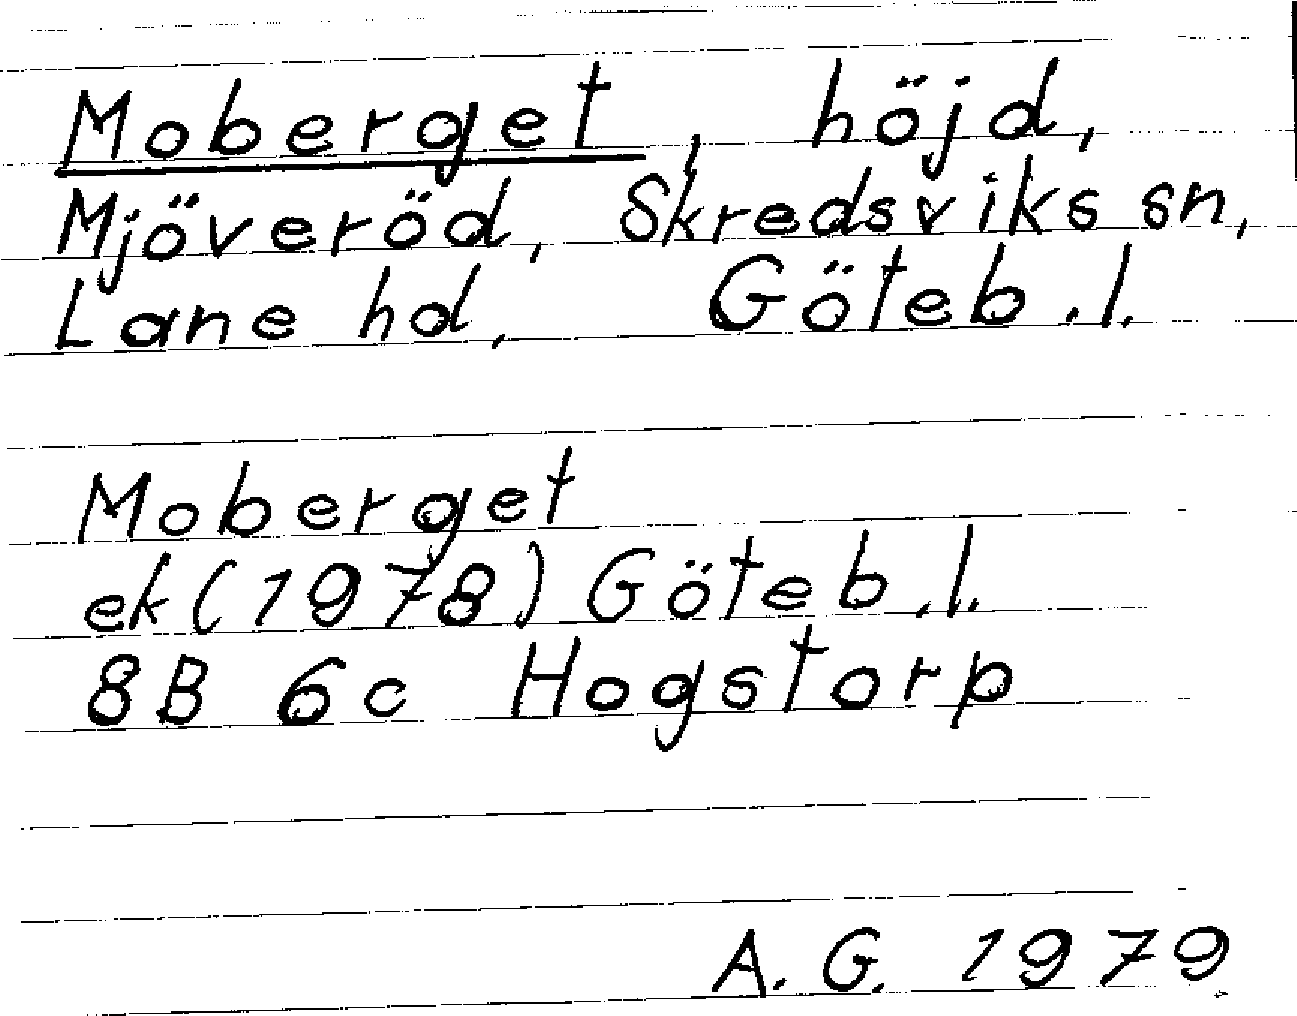 Moberget, höjd,
Mjöveröd, Skredsviks sn,
Lane hd, Göteb.l.
Moberget
ek(1978) Göteb.l.
8B 6c Hogstorp
A.G. 1979